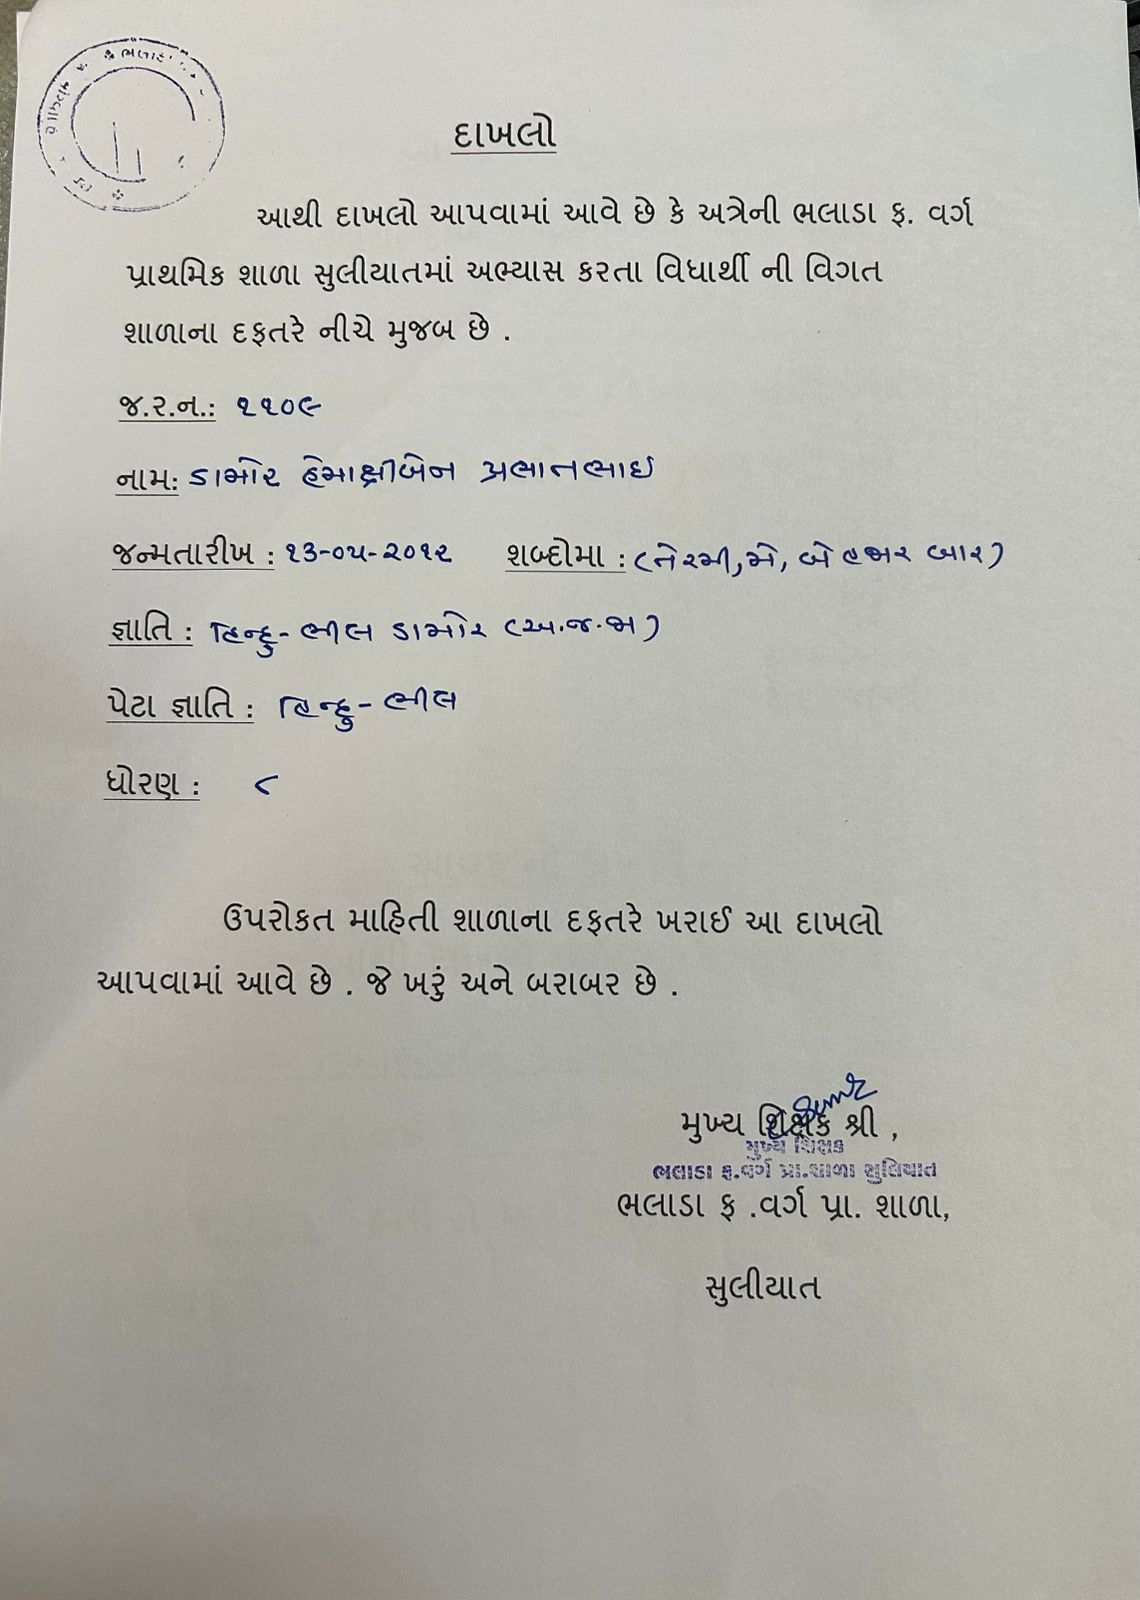 દાખલો
આથી દાખલો આપવામાં આવે છે કે અત્રેની ભલાડા ફ. વર્ગ
પ્રાથમિક શાળા સુલીયાતમાં અભ્યાસ કરતા વિધાર્થી ની વિગત
શાળાના દફતરે નીચે મુજબ છે .
જ.ર.ન.: ૧૧૦૯
નામ: ડામોર હેમાક્ષીબેન પ્રભાતભાઇ
જન્મતારીખ : ૧૩-૦૫-૨૦૧૨ શબ્દોમા : (તેરમી, મે, બે હજાર બાર)
જ્ઞાતિ : હિન્દુ- ભીલ ડામોર (અ.જ.જા)
પેટા જ્ઞાતિ : હિન્દુ- ભીલ
ધોરણ : ૮
ઉપરોકત માહિતી શાળાના દફતરે ખરાઈ આ દાખલો
આપવામાં આવે છે . જે ખરું અને બરાબર છે .
મુખ્ય શિક્ષક શ્રી ,
મુખ્ય શિક્ષક
ભલાડા ફ.વર્ગ પ્રા.શાળા સુલિયાત
ભલાડા ફ .વર્ગ પ્રા. શાળા,
સુલીયાત